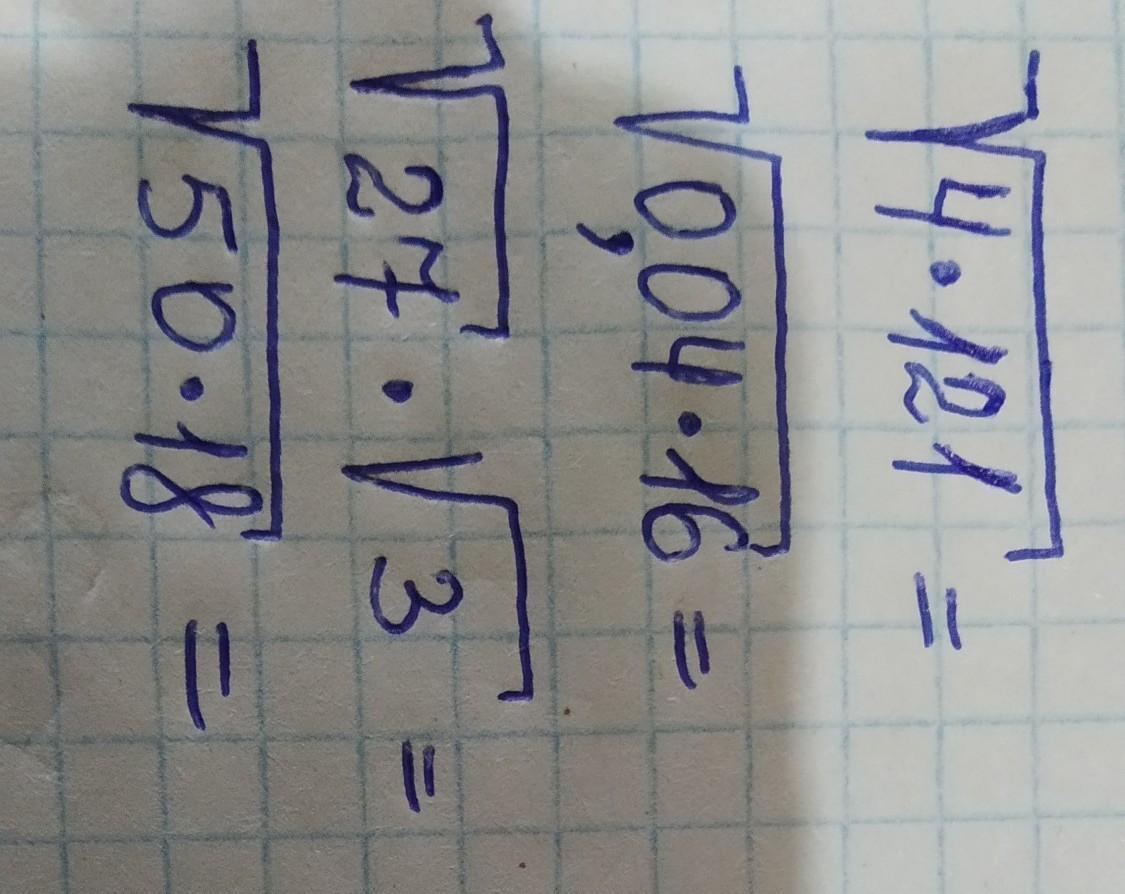 √4·121 =
√0,04·16 =
√27 · √3 =
√50·18 =